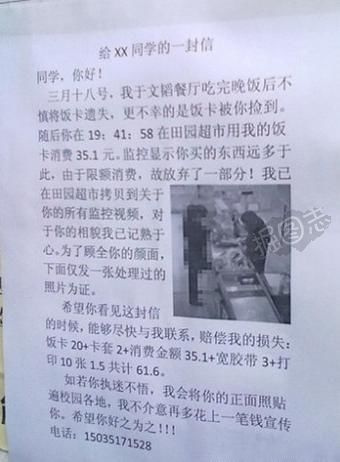 给XX同学的一封信
同学，你好！
三月十八号，我于文韬餐厅吃完晚饭后不
慎将饭卡遗失，更不幸的是饭卡被你捡到。
随后你在 19：41：58 在田园超市用我的饭
卡消费 35.1 元。监控显示你买的东西远多于
此，由于限额消费，故放弃了一部分！我已
在田园超市拷贝到关于
你的所有监控视频，对
于你的相貌我已记熟于
心。为了顾全你的颜面，
下面仅发一张处理过的
照片为证。
掘图志
希望你看见这封信
的时候，能够尽快与我联系，赔偿我的损失：
饭卡 20+卡套 2+消费金额 35.1+宽胶带 3+打
印 10 张 1.5 共计 61.6。
如若你执迷不悟，我会将你的正面照贴
遍校园各地，我不介意再多花上一笔钱宣传
你。希望你好之为之!!!
电话：15035171528